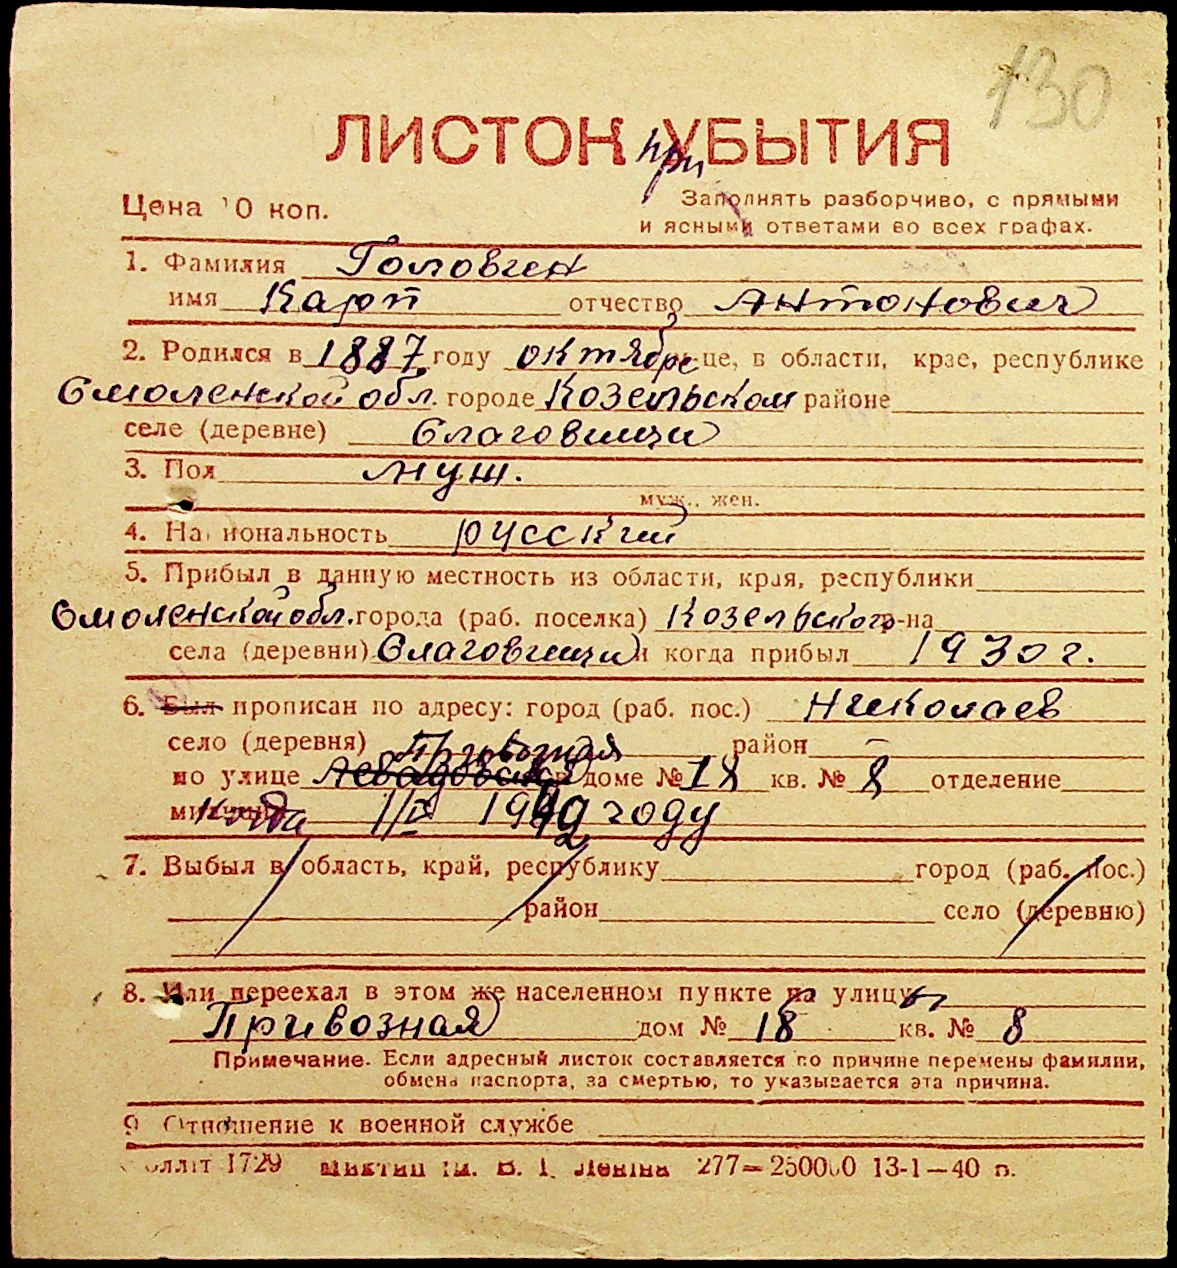 130
ЛИСТОК приУБЫТИЯ
Цена 10 коп. Заполнять разборчиво, с прямыми
и ясными ответами во всех графах.
1. Фамилия Головген
имя Карп отчество Антонович
2. Родился в 1887 году октябре це, в области, крае, республике
Смоленской обл. городе Козельском районе
селе (деревне) Слаговищи
3. Пол муж.
муж., жен.
4. Национальность русский
5. Прибыл в данную местность из области, края, республики
Смоленской обл. города (раб. поселка) Козельского р-на
села (деревни) Слаговищи и когда прибыл 1930 г.
6. Был прописан по адресу: город (раб. пос.) Николаев
село (деревня) Привозная район –
по улице в доме № 18 кв. № 8 отделение
милиции когда 1949 году
7. Выбыл в область, край, республику город (раб. пос.)
район село (деревню)
8. Или переехал в этом же населенном пункте на улицу
Привозная дом № 18 кв. № 8
Примечание. Если адресный листок составляется по причине перемены фамилии,
обмена паспорта, за смертью, то указывается эта причина.
9 Отношение к военной службе
1729 Леніна 277—250000 13-1—40 п.